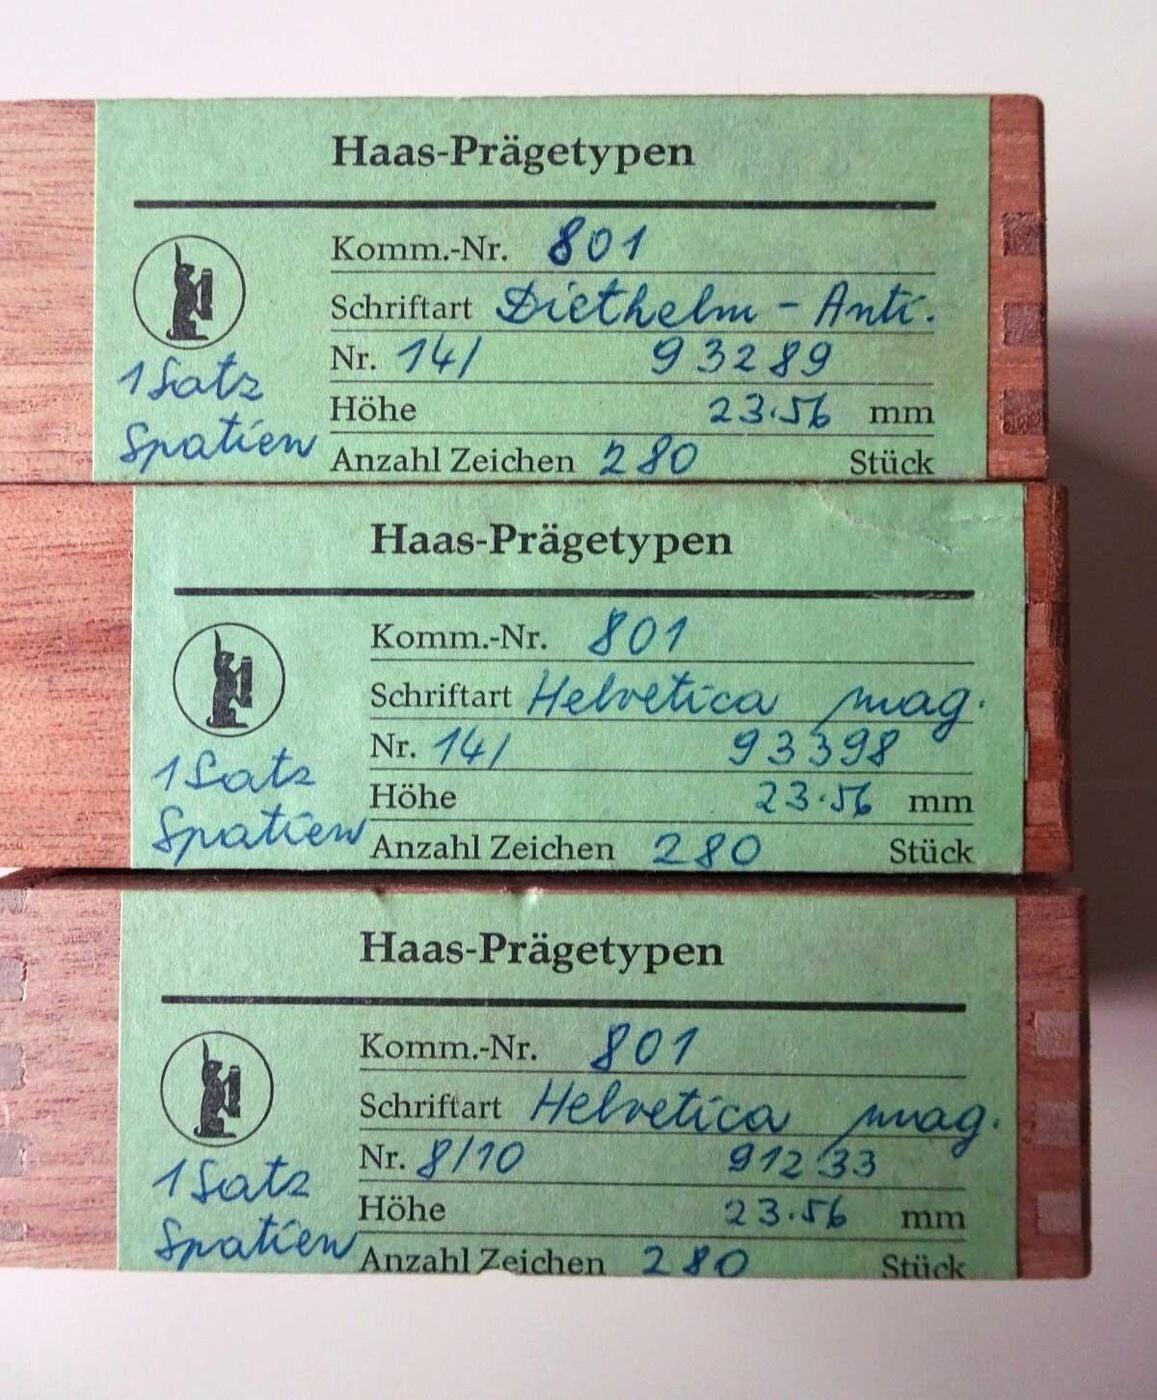 Haas-Prägetypen
Komm.-Nr. 801
Schriftart Diethelm - Anti.
Nr. 14/ 93289
Höhe 23.56 mm
Anzahl Zeichen 280 Stück
1 Satz
Spatien
Haas-Prägetypen
Komm.-Nr. 801
Schriftart Helvetica mag.
Nr. 14/ 93398
Höhe 23.56 mm
Anzahl Zeichen 280 Stück
1 Satz
Spatien
Haas-Prägetypen
Komm.-Nr. 801
Schriftart Helvetica mag.
Nr. 8/10 91233
Höhe 23.56 mm
Anzahl Zeichen 280 Stück
1 Satz
Spatien